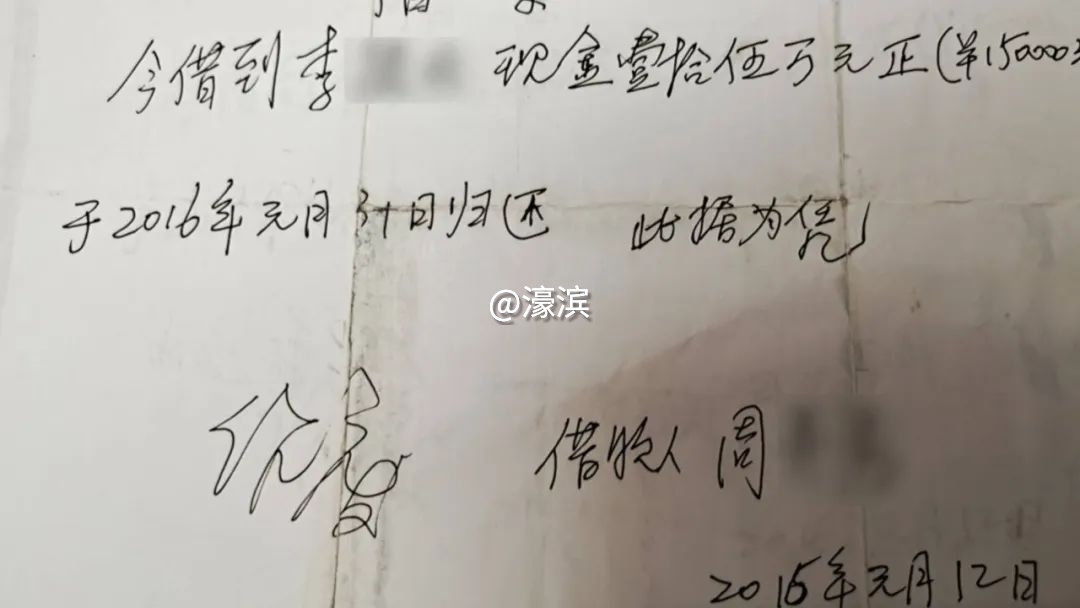 今借到李 现金壹拾伍万元正(¥150000元
于2016年元月30日归还 此据为凭
@濠滨
借款人 周
2015年元月12日